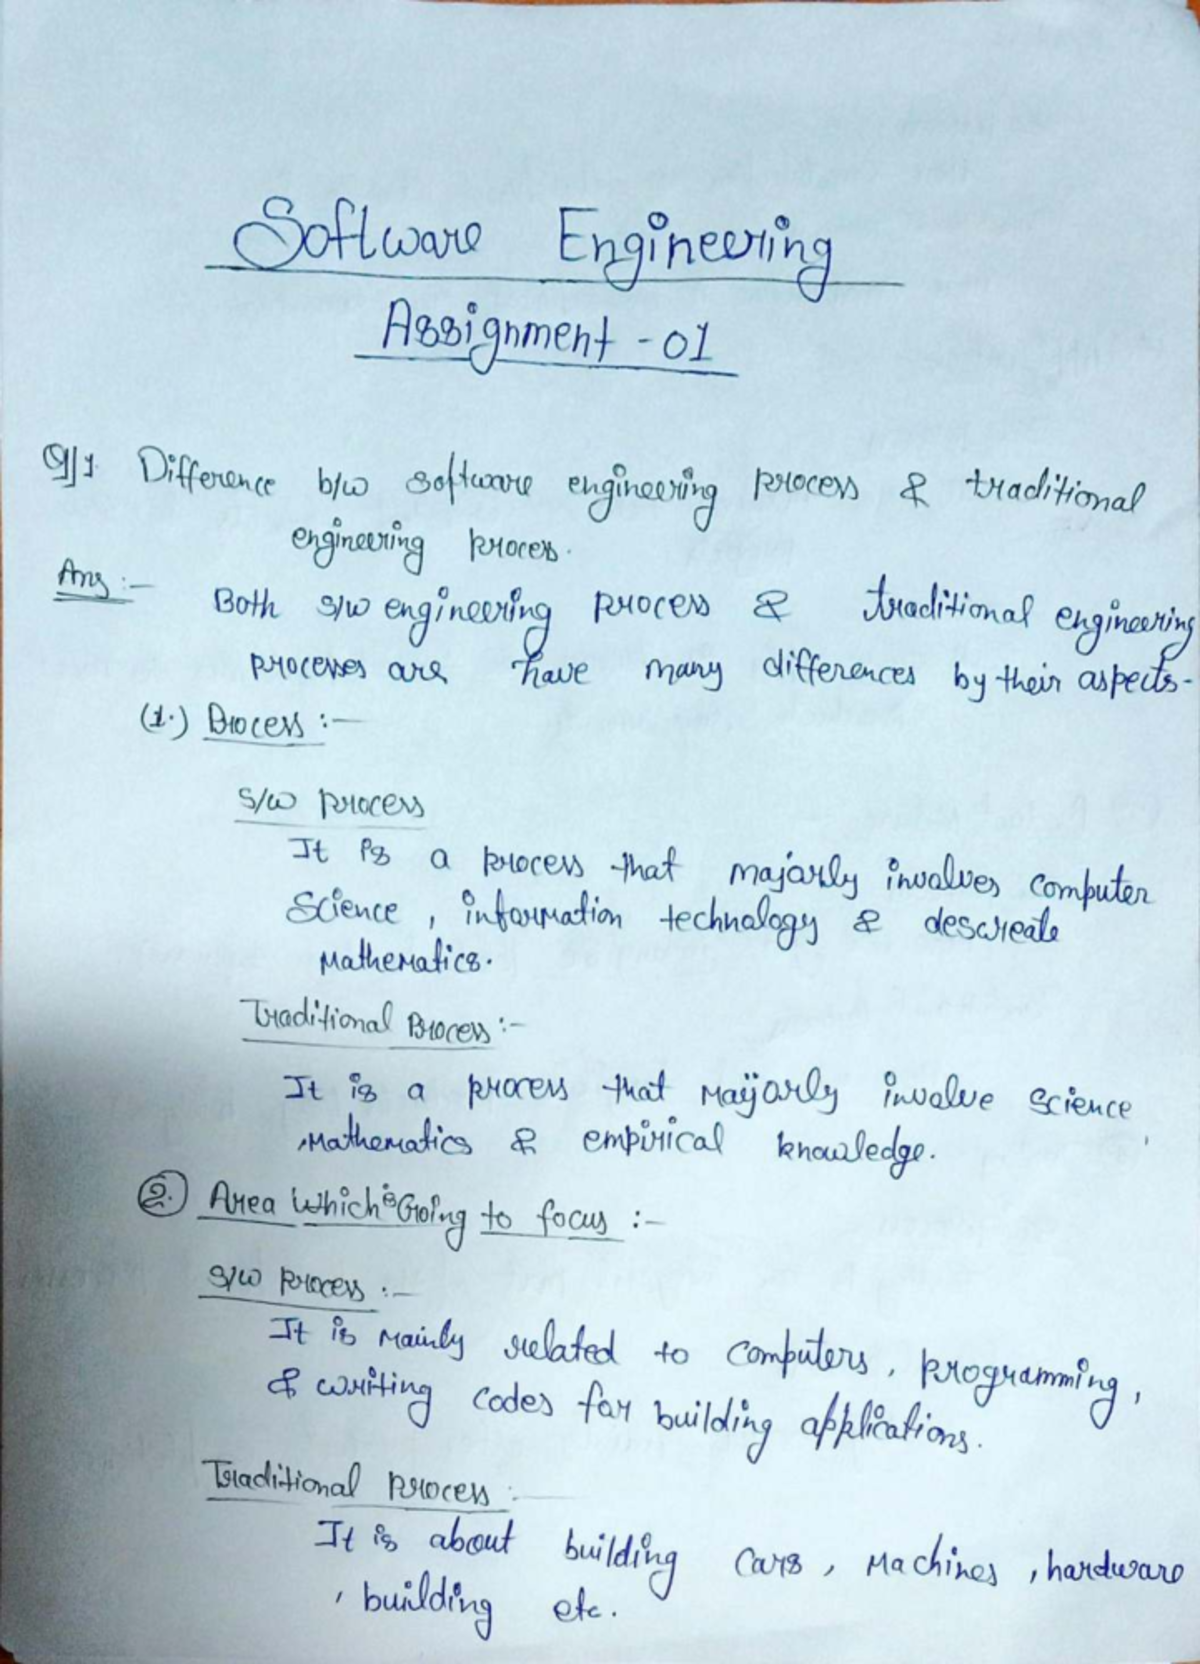 Software Engineering
Assignment - 01
Q/1 Difference b/w software engineering process & traditional
engineering process.
Ans :-
Both s/w engineering process & traditional engineering
processes are have many differences by their aspects-
(1.) Process :-
S/W process
It is a process that majorly involves computer
Science, information technology & descreate
Mathematics.
Traditional Process :-
It is a process that Majorly involve science
,Mathematics & empirical knowledge.
2. Area which is Going to focus :-
S/W process :-
It is mainly related to computers, programming,
& writing codes for building applications.
Traditional process :-
It is about building cars, Machines, hardware
, building etc.